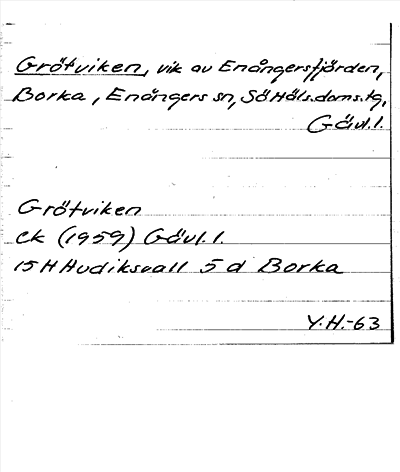 Grötviken, vik av Enångersfjärden,
Borka, Enångers sn, Sö Häls. doms. tg,
Gävl. l.
Grötviken
ek (1959) Gävl. l.
15 H Hudiksvall 5 d Borka
Y.H.-63